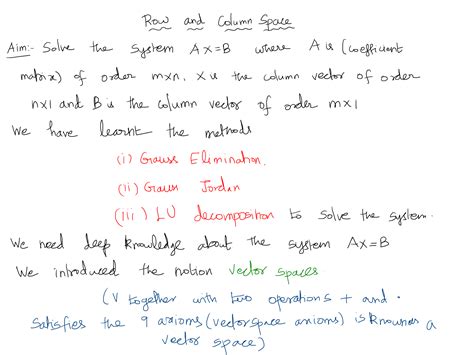 Row and Column Space
Aim:- Solve the system AX=B where A is (coefficient
matrix) of order m×n, X is the column vector of order
n×1 and B is the column vector of order m×1
We have learnt the methods
(i) Gauss Elimination.
(ii) Gauss Jordan
(iii) LU decomposition to solve the system.
We need deep knowledge about the system AX=B
We introduced the notion vector spaces.
(V together with two operations + and ·
satisfies the 9 axioms (vectorspace axioms) is known as a
vector space)